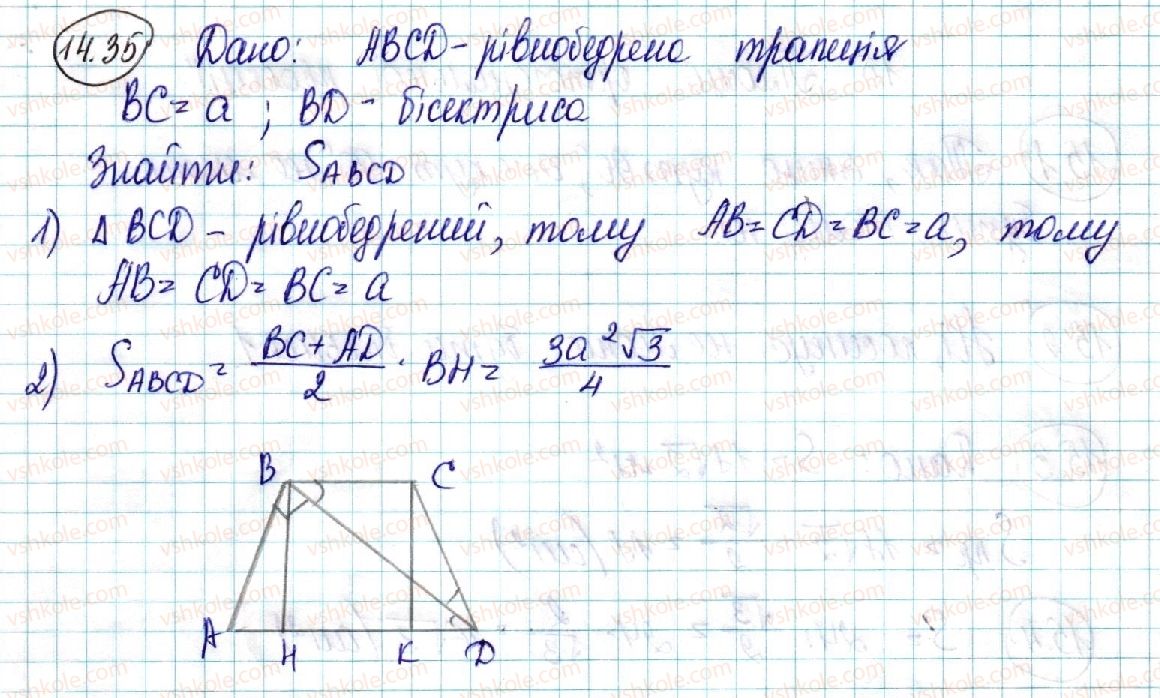 14.35 Дано: ABCD - рівнобедрена трапеція
BC = a ; BD - бісектриса
Знайти: S_ABCD
1) Δ BCD - рівнобедрений, тому AB = CD = BC = a, тому
AB = CD = BC = a
2) S_ABCD = (BC + AD)/2 · BH = 3a²√3/4
B C
A H K D